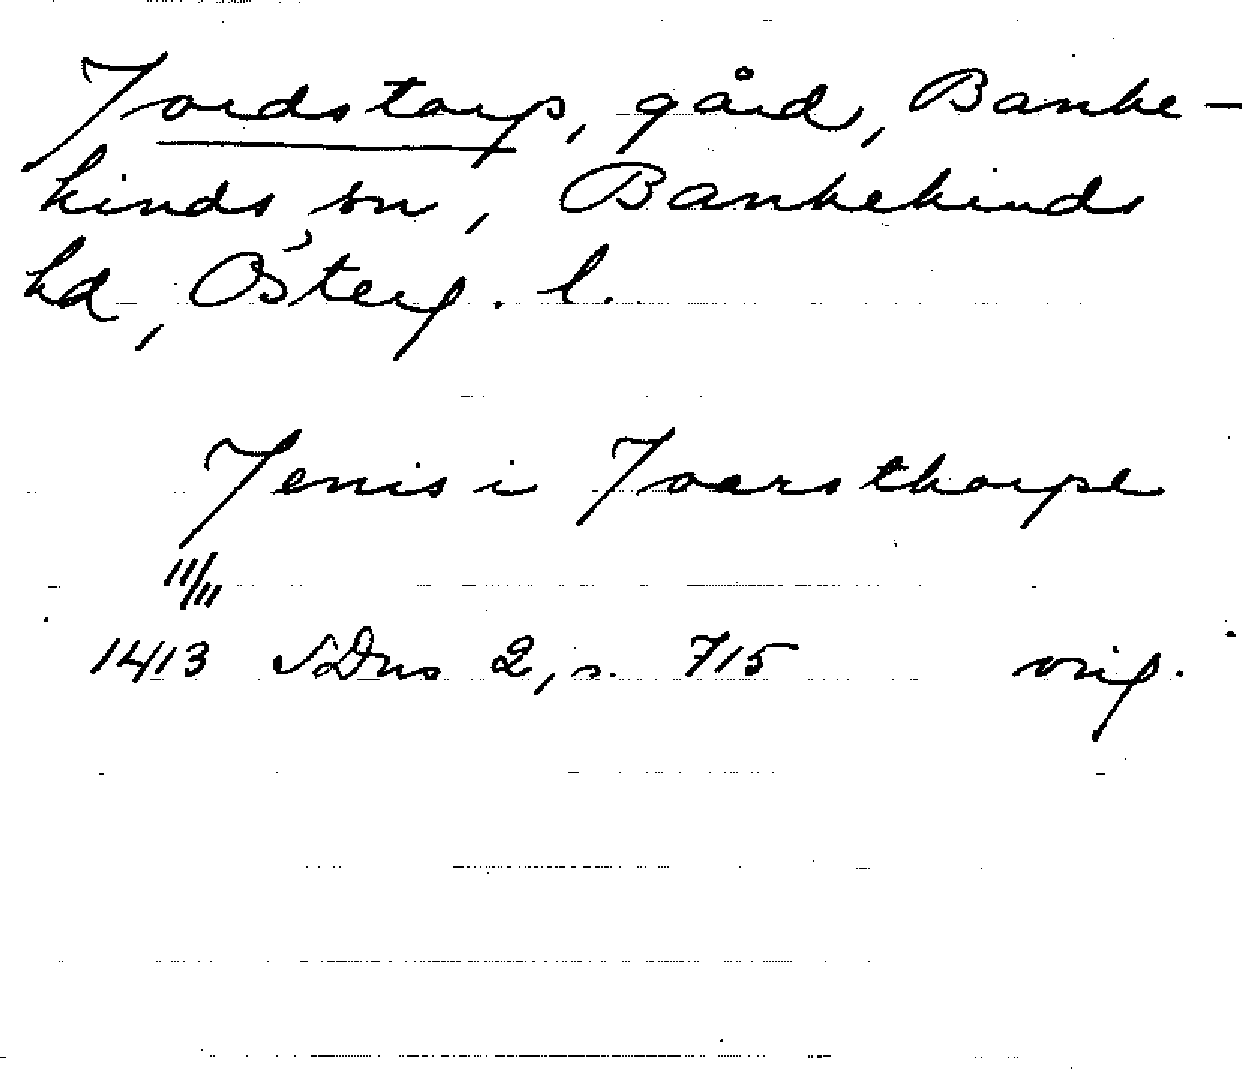 Jordstorp, gård, Banke-
kinds sn, Bankekinds
hd, Österg. l.
Jenis i Joarsthorpe
11/11
1413 SDns 2, s. 715 orig.